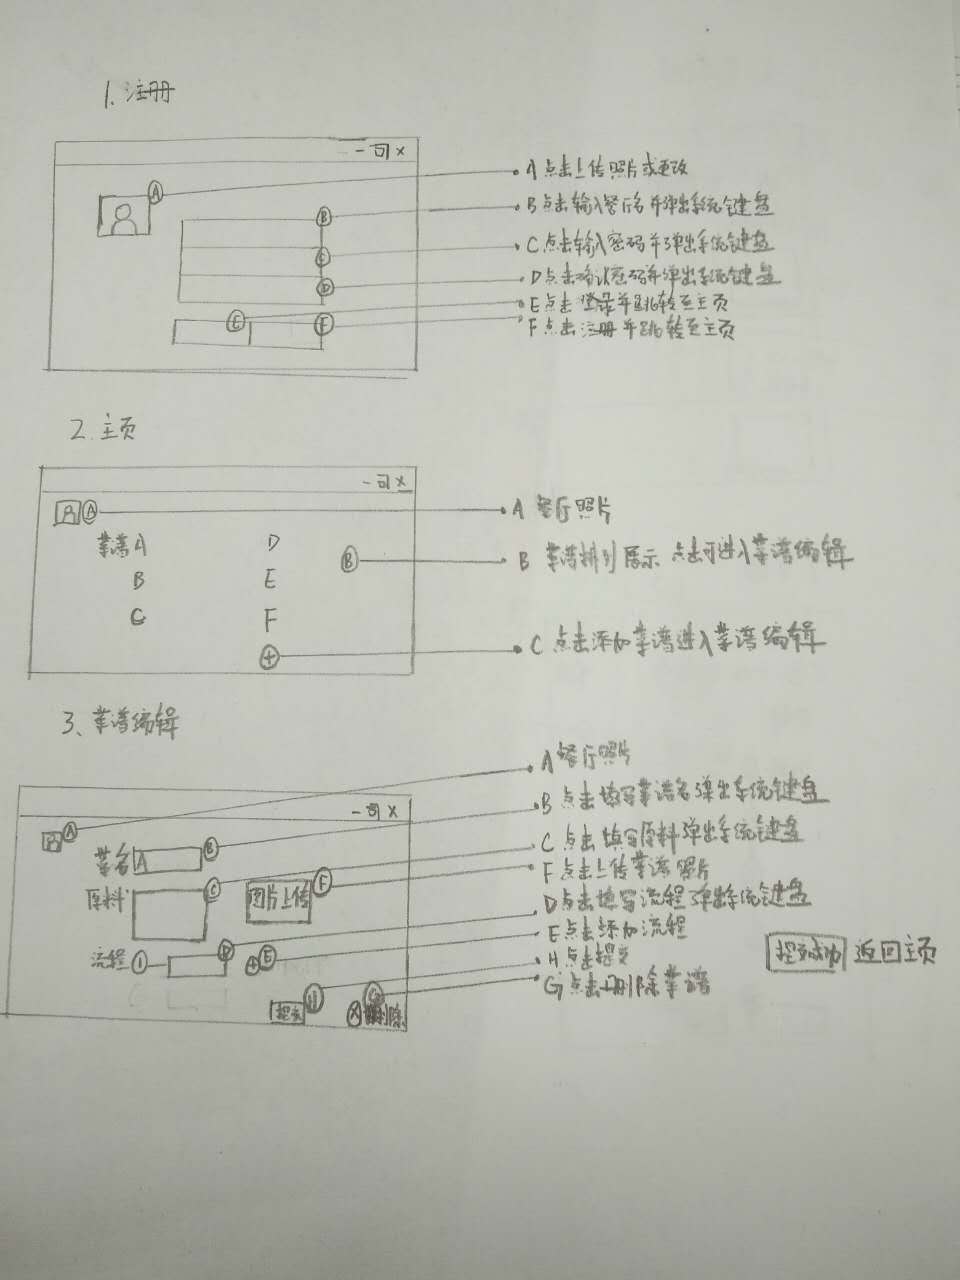 1. 注册
A
B
C
D
E
F
A 点击上传照片或更改
B 点击输入餐厅名并弹出系统键盘
C 点击输入密码并弹出系统键盘
D 点击确认密码并弹出系统键盘
E 点击登录并跳转至主页
F 点击注册并跳转至主页
2. 主页
A
菜谱A D
B E
C F
B
+
A 餐厅照片
B 菜谱排列展示 点击可进入菜谱编辑
C 点击添加菜谱进入菜谱编辑
3、菜谱编辑
A
菜名 A B
原料 C
图片上传 F
流程 1 D
+ E
提交 H
X 删除 G
A 餐厅照片
B 点击填写菜谱名弹出系统键盘
C 点击填写原料弹出系统键盘
F 点击上传菜谱照片
D 点击填写流程弹出系统键盘
E 点击添加流程
H 点击提交
G 点击删除菜谱
提交成功 返回主页